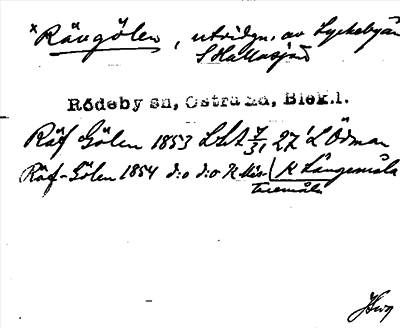 x Rävgölen, utvidgn. av Lyckebyån
S Hallasjö
Rödeby sn, Östra hd, Blek.l.
Räf Gölen 1853 LSA 27 L Ödman
Räf-Gölen 1854 d:o d:o N K Långemåla